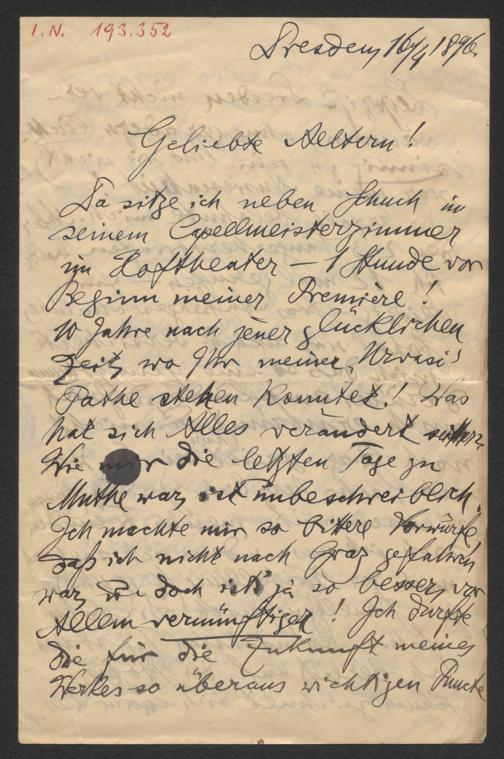 I.N. 193.352
Dresden, 16/4 1896.
Geliebte Aeltern!
Da sitze ich neben Schuch in
seinem Capellmeisterzimmer
im Hoftheater – 1 Stunde vor
Beginn meiner Première!
10 Jahre nach jener glücklichen
Zeit, wo Ihr meiner „Urvasi“
Pathe stehen konntet! Was
hat sich Alles verändert seither.
Wie mir die letzten Tage zu
Muthe war, ist unbeschreiblich.
Ich machte mir so bittere Vorwürfe,
daß ich nicht nach Graz gefahren
war, u. doch ist's ja so besser, vor
Allem vernünftiger! Ich durfte
die für die Zukunft meines
Werkes so überaus wichtigen Puncte